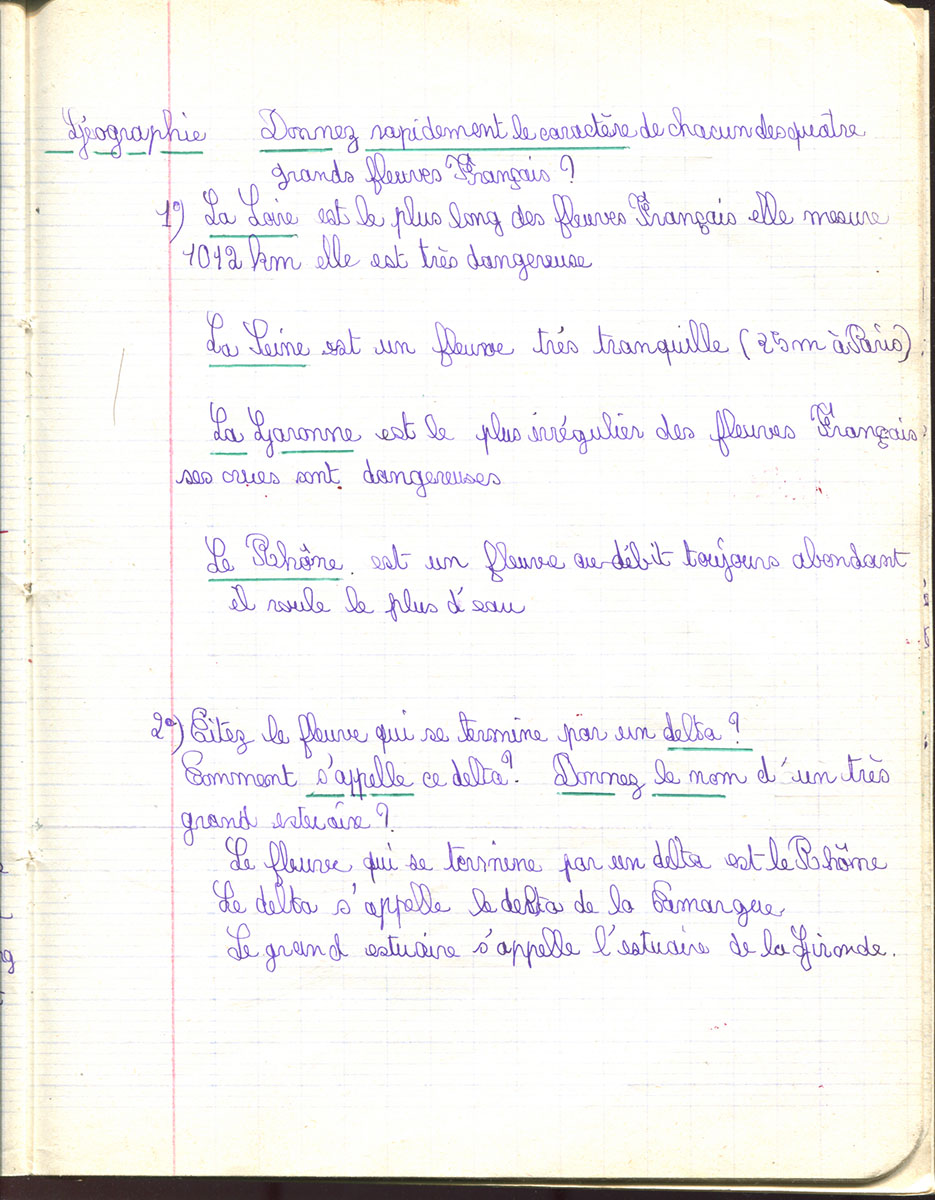 Géographie Donnez rapidement le caractère de chacun des quatre
grands fleuves Français ?
1º) La Loire est le plus long des fleuves Français elle mesure
1012 km elle est très dangereuse
La Seine est un fleuve trés tranquille (25m à Paris)
La Garonne est le plus irrégulier des fleuves Français
ses crues sont dangereuses
Le Rhône est un fleuve au débit toujours abondant
il roule le plus d'eau
2º) Citez le fleuve qui se termine par un delta ?
Comment s'appelle ce delta ? Donnez le nom d'un très
grand estuaire ?
Le fleuve qui se termine par un delta est le Rhône
Le delta s'appelle le delta de la Camargue
Le grand estuaire s'appelle l'estuaire de la Gironde.